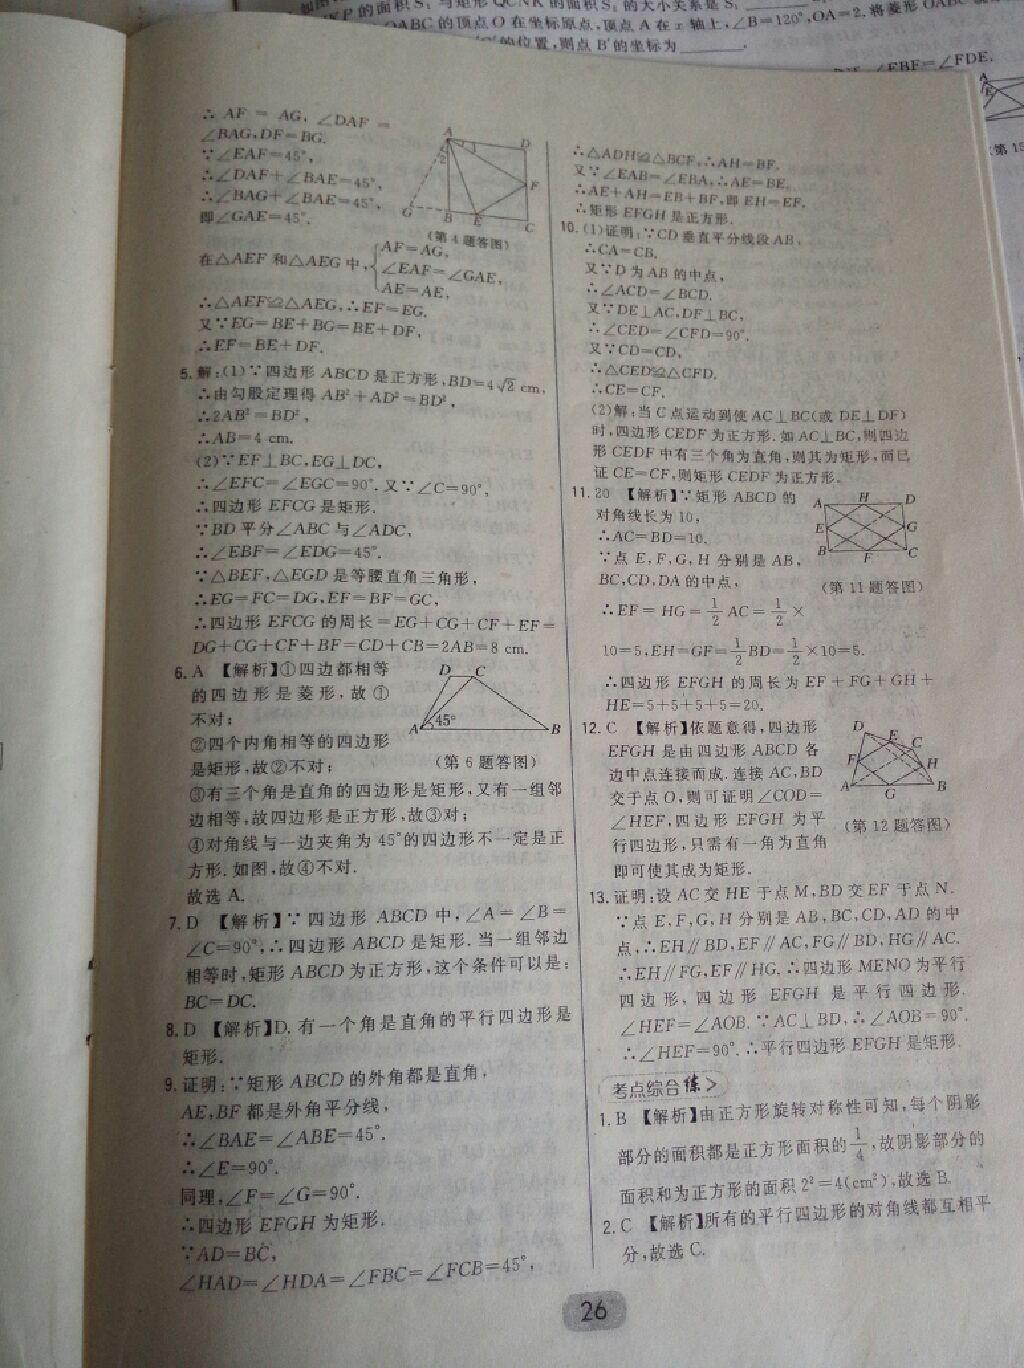 KP的面积S₁与矩形QCNK的面积S₂的大小关系是S₁
OABC的顶点O在坐标原点,顶点A在x轴上,∠B=120°,OA=2,将菱形OABC
的位置,则点B′的坐标为
∠EBF=∠FDE.
(第15
∴AF=AG,∠DAF=
∠BAG,DF=BG.
∵∠EAF=45°,
∴∠DAF+∠BAE=45°,
∴∠BAG+∠BAE=45°,
即∠GAE=45°.
A
D
1
2
F
G
B
E
C
(第4题答图)
在△AEF和△AEG中,{AF=AG,
∠EAF=∠GAE,
AE=AE,
∴△AEF≌△AEG,∴EF=EG.
又∵EG=BE+BG=BE+DF,
∴EF=BE+DF.
5.解:(1)∵四边形ABCD是正方形,BD=4√2 cm,
∴由勾股定理得AB²+AD²=BD²,
∴2AB²=BD²,
∴AB=4 cm.
(2)∵EF⊥BC,EG⊥DC,
∴∠EFC=∠EGC=90°.又∵∠C=90°,
∴四边形EFCG是矩形.
∵BD平分∠ABC与∠ADC,
∴∠EBF=∠EDG=45°.
∵△BEF,△EGD是等腰直角三角形,
∴EG=FC=DG,EF=BF=GC,
∴四边形EFCG的周长=EG+CG+CF+EF=
DG+CG+CF+BF=CD+CB=2AB=8 cm.
6.A 【解析】①四边都相等
的四边形是菱形,故①
不对;
②四个内角相等的四边形
是矩形,故②不对;
D C
A 45° B
(第6题答图)
③有三个角是直角的四边形是矩形,又有一组邻
边相等,故四边形是正方形,故③对;
④对角线与一边夹角为45°的四边形不一定是正
方形.如图,故④不对.
故选A.
7.D 【解析】∵四边形ABCD中,∠A=∠B=
∠C=90°,∴四边形ABCD是矩形.当一组邻边
相等时,矩形ABCD为正方形,这个条件可以是:
BC=DC.
8.D 【解析】D.有一个角是直角的平行四边形是
矩形.
9.证明:∵矩形ABCD的外角都是直角,
AE,BF都是外角平分线,
∴∠BAE=∠ABE=45°.
∴∠E=90°.
同理,∠F=∠G=90°.
∴四边形EFGH为矩形.
∵AD=BC,
∠HAD=∠HDA=∠FBC=∠FCB=45°,
∴△ADH≌△BCF,∴AH=BF.
又∵∠EAB=∠EBA,∴AE=BE.
∴AE+AH=EB+BF,即EH=EF.
∴矩形EFGH是正方形.
10.(1)证明:∵CD垂直平分线段AB,
∴CA=CB.
又∵D为AB的中点,
∴∠ACD=∠BCD.
又∵DE⊥AC,DF⊥BC,
∴∠CED=∠CFD=90°.
又∵CD=CD,
∴△CED≌△CFD.
∴CE=CF.
(2)解:当C点运动到使AC⊥BC(或DE⊥DF)
时,四边形CEDF为正方形.如AC⊥BC,则四边
形CEDF中有三个角为直角,则其为矩形,而已
证CE=CF,则矩形CEDF为正方形.
11.20 【解析】∵矩形ABCD的
对角线长为10,
∴AC=BD=10.
∵点E,F,G,H分别是AB,
BC,CD,DA的中点,
A H D
E G
B F C
(第11题答图)
∴EF=HG=1/2AC=1/2×
10=5,EH=GF=1/2BD=1/2×10=5.
∴四边形EFGH的周长为EF+FG+GH+
HE=5+5+5+5=20.
12.C 【解析】依题意得,四边形
EFGH是由四边形ABCD各
边中点连接而成.连接AC,BD
交于点O,则可证明∠COD=
∠HEF,四边形EFGH为平
行四边形,只需有一角为直角
即可使其成为矩形.
D
E
C
F
H
A
G
B
(第12题答图)
13.证明:设AC交HE于点M,BD交EF于点N.
∵点E,F,G,H分别是AB,BC,CD,AD的中
点,∴EH∥BD,EF∥AC,FG∥BD,HG∥AC.
∴EH∥FG,EF∥HG.∴四边形MENO为平行
四边形,四边形EFGH是平行四边形.
∠HEF=∠AOB.∵AC⊥BD,∴∠AOB=90°.
∴∠HEF=90°.∴平行四边形EFGH是矩形.
考点综合练>
1.B 【解析】由正方形旋转对称性可知,每个阴影
部分的面积都是正方形面积的1/4,故阴影部分的
面积和为正方形的面积2²=4(cm²),故选B.
2.C 【解析】所有的平行四边形的对角线都互相平
分,故选C.
26